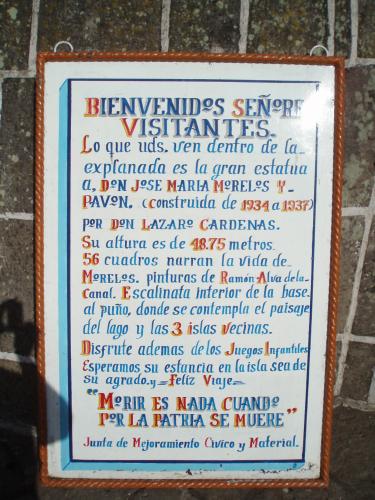 BIENVENIDOS SEÑORES
VISITANTES.
Lo que uds. ven dentro de la
explanada es la gran estatua
a, DON JOSE MARIA MORELOS Y
PAVON. (construida de 1934 a 1937)
POR DON LAZARO CARDENAS.
Su altura es de 48.75 metros.
56 cuadros narran la vida de
MORELOS. pinturas de Ramón Alva de la
Canal. Escalinata interior de la base
al puño, donde se contempla el paisaje
del lago y las 3 islas vecinas.
Disfrute ademas de los Juegos Infantiles
Esperamos su estancia en la isla sea de
su agrado. y Feliz Viaje
"MORIR ES NADA CUANDO
POR LA PATRIA SE MUERE"
Junta de Mejoramiento Civico y Material.